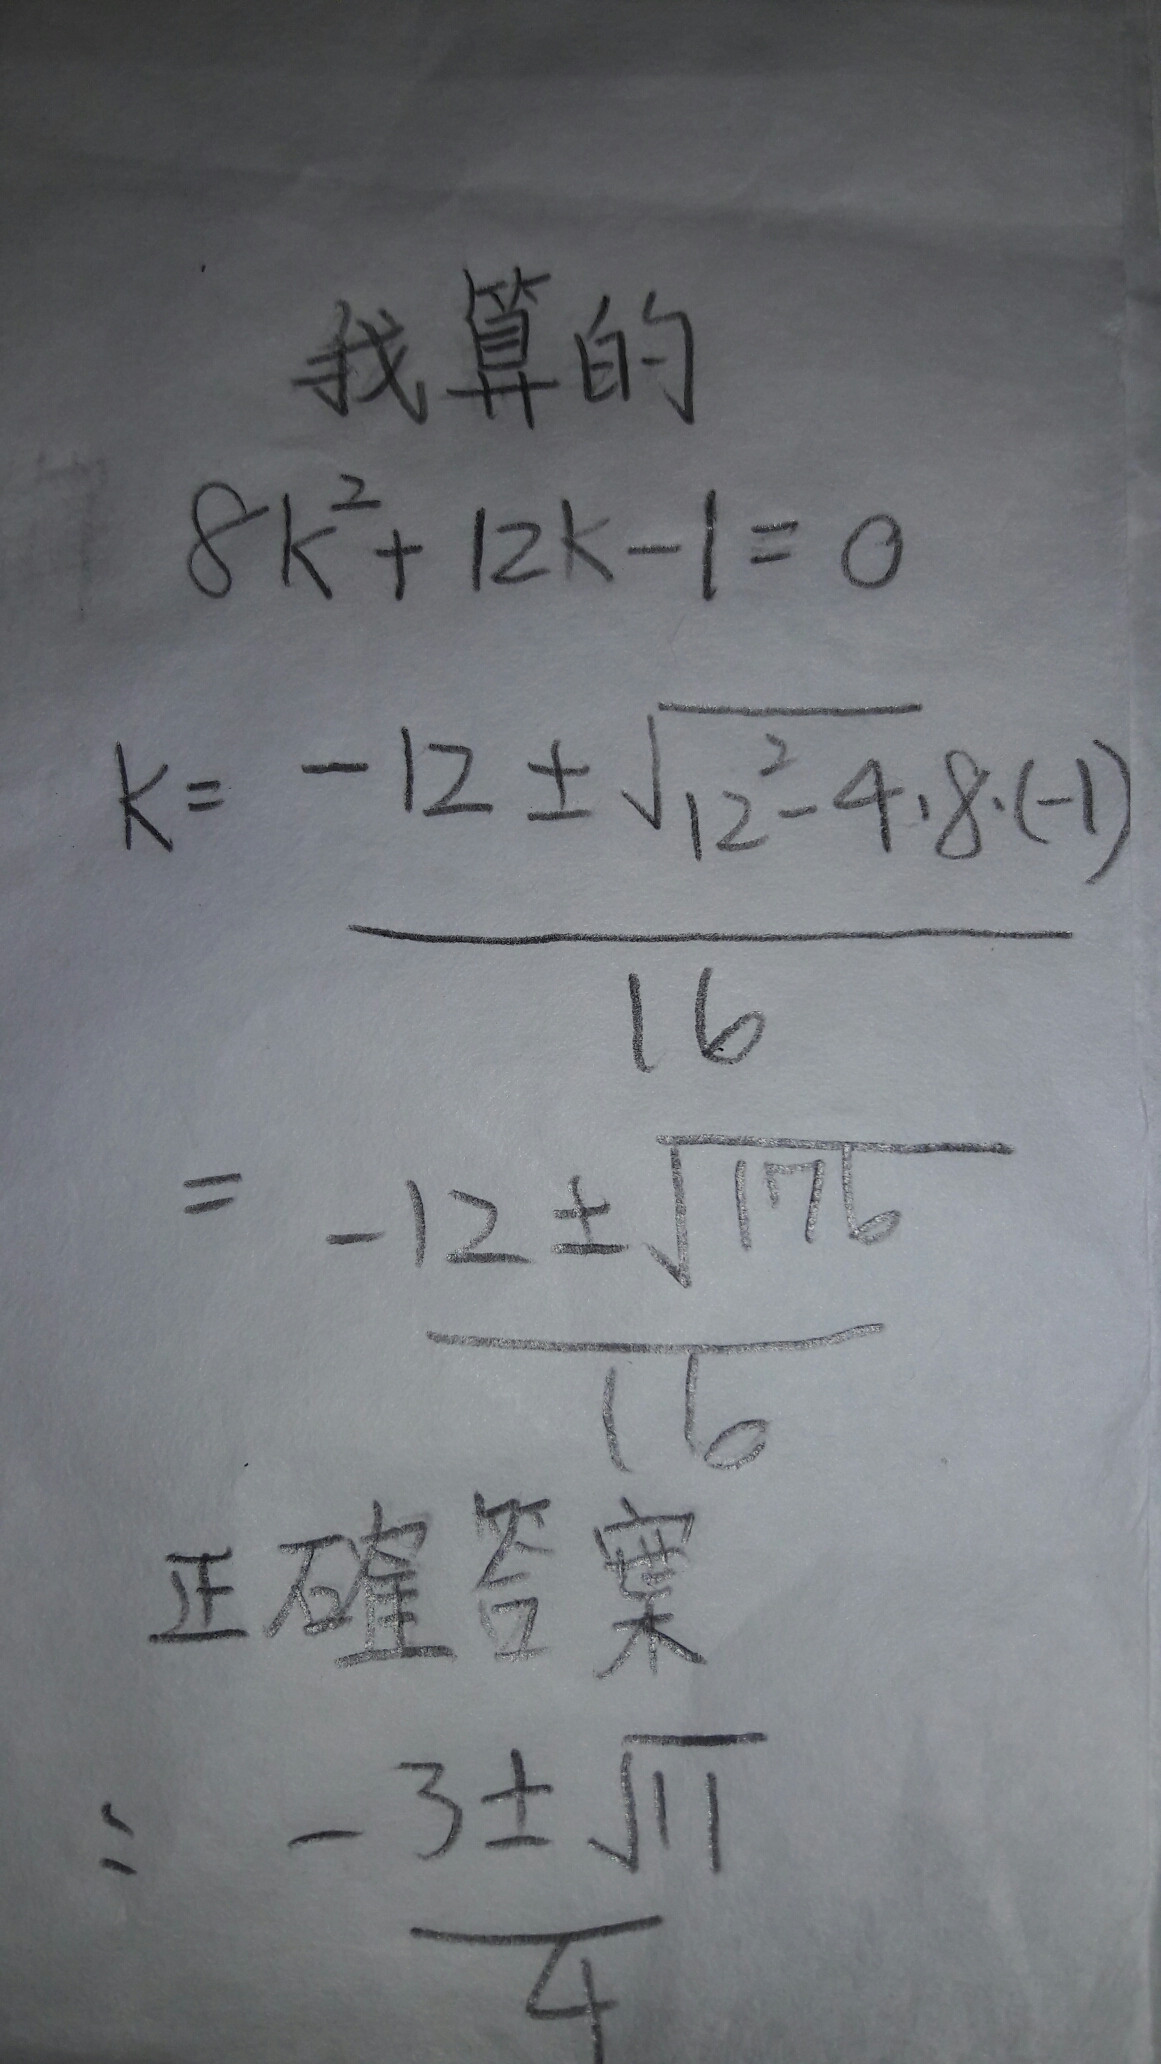 我算的
8k²+12k-1=0
k= -12±√12²-4·8·(-1)
16
= -12±√176
16
正確答案
= -3±√11
4